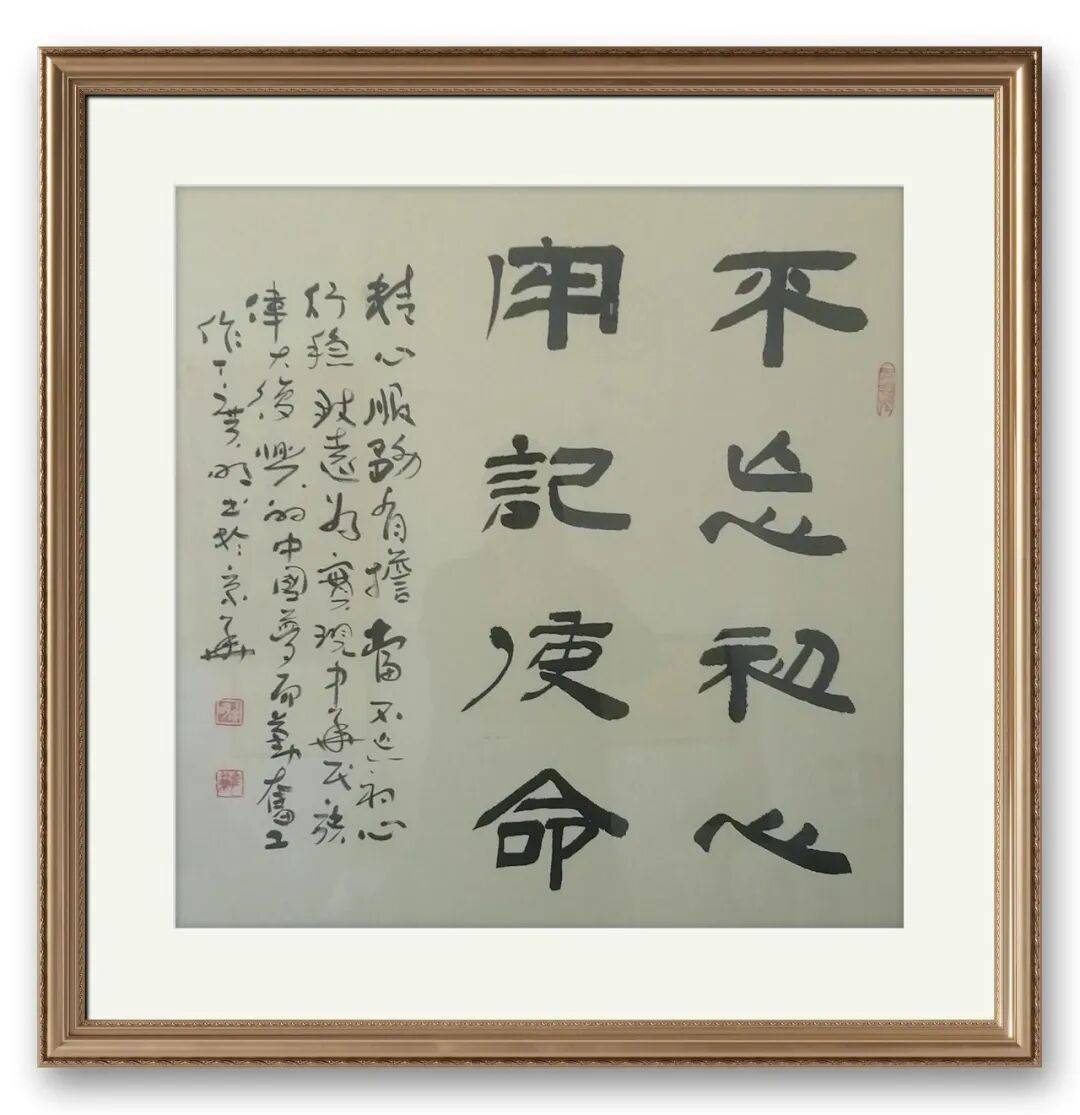 不忘初心
牢記使命
精心服務有擔當不忘初心
行穩致遠為實現中華民族
偉大復興的中國夢而勤奮工
作書於京華